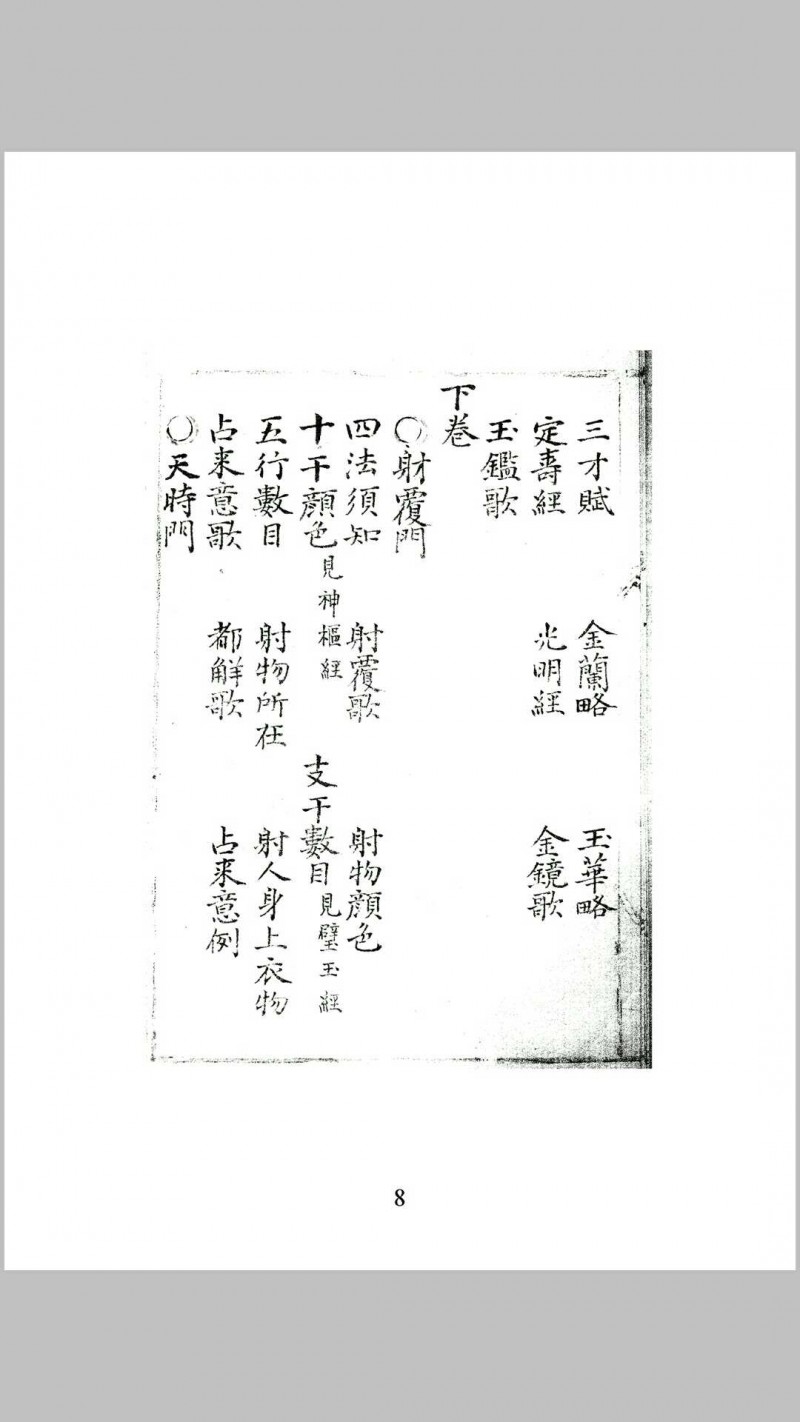 三才賦 金蘭略 玉華略
定壽經 光明經 金鏡歌
玉鑑歌
下卷
〇財覆門
四法須知 射覆歌 射物顔色
十干顔色見神樞經 支干數目見璧玉經
五行數目 射物所在 射人身上衣物
占来意歌 都解歌 占来意例
〇天時門
8